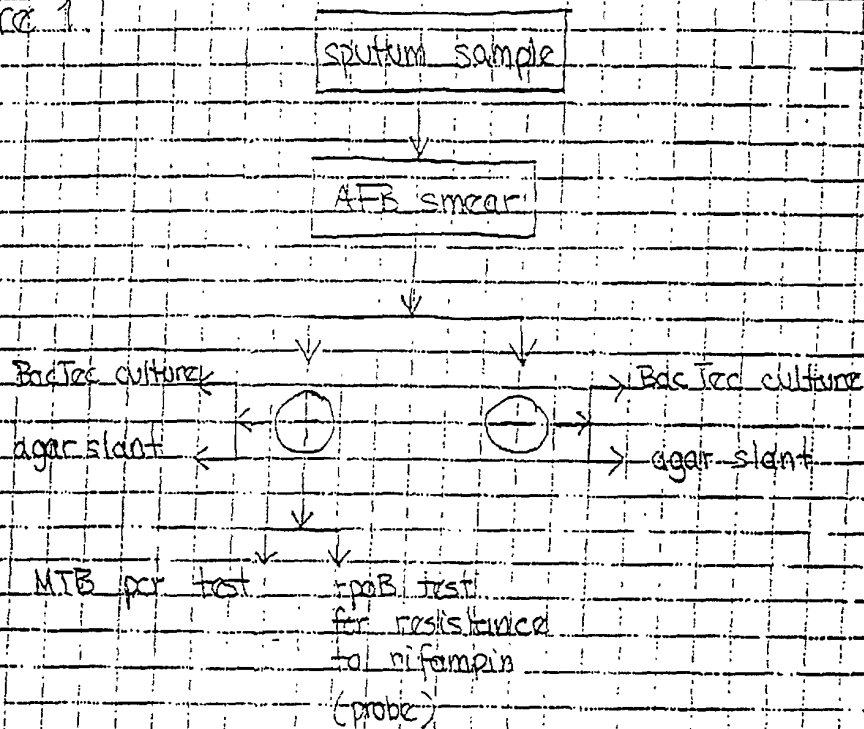 re 1
sputum sample
AFB smear
BacTec culture
agar slant
+
-
BacTec culture
agar slant
MTB pcr test
rpoB test
for resistance
to rifampin
(probe)